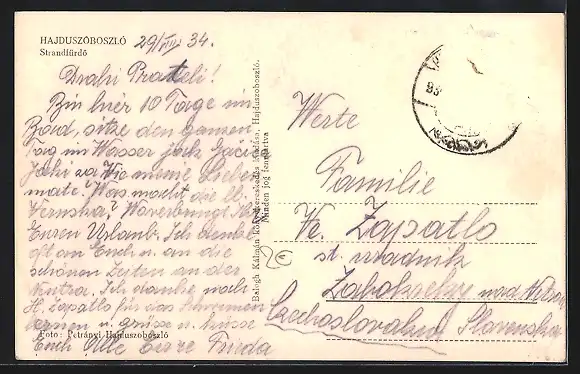 HAJDUSZOBOSZLÓ
Strandfürdő
29/VIII. 34.
Drahi Prateli!
Bin hier 10 Tage im
Bad, sitze den ganzen
Tag im Wasser
Jahr
mate. Was macht die lb.
Vernska?
Euren Urlaub. Ich denke
oft an Euch u. an die
schönen Zeiten an der
Nitra. Ich danke noch
H. Zapatlo für das Schwimmen
lernen u. grüsse u. küsse
Euch Alle Eure Frieda
Foto: Petrányi Hajduszoboszló
Balogh Kálmán könyvkereskedés kiadása, Hajduszoboszló.
Minden jog fenntartva
Werte
Familie
Ve. Zapatlo
st. uradnik
nad Nitrou
Czechoslovakei Slovensko